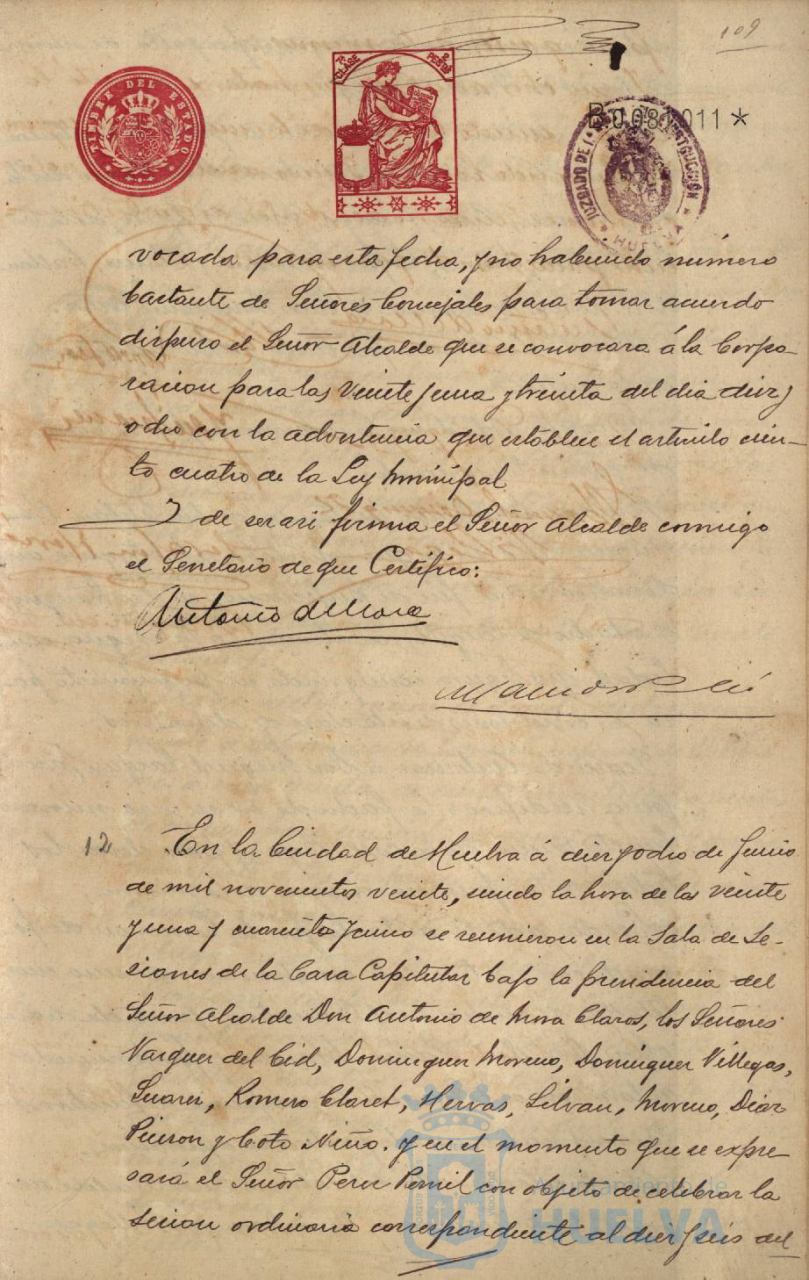 109
TIMBRE DEL ESTADO
7ª CLASE
PESETAS
B.0.080.011 *
JUZGADO DE 1ª INSTRUCCIÓN
HUELVA
vocada para esta fecha, y no habiendo número
bastante de Señores Concejales para tomar acuerdo
dispuso el Señor Alcalde que se convocara á la Corpo-
racion para las veinte y una y treinta del dia diez y
ocho con la advertencia que establece el articulo cien-
to cuatro de la Ley Municipal
Y de ser asi firma el Señor Alcalde conmigo
el Secretario de que Certifico:
Antonio de Mora
12 En la Ciudad de Huelva á diez y ocho de Junio
de mil novecientos veinte, siendo la hora de las veinte
y una y cuarenta y cinco se reunieron en la Sala de Se-
siones de la Casa Capitular bajo la presidencia del
Señor Alcalde Don Antonio de Mora Claros, los Señores
Vazquez del Cid, Dominguez Moreno, Dominguez Villegas,
Suarez, Romero Claret, Hervas, Silvan, Moreno, Diaz
y Coto Niño. y en el momento que se expre-
sará el Señor Perez con objeto de celebrar la
sesion ordinaria correspondiente al diez y seis del
Ayuntamiento de
HUELVA